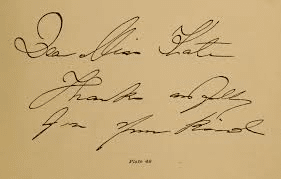 Dear Miss Kate
Thanks awfully
for your kind
Plate 40